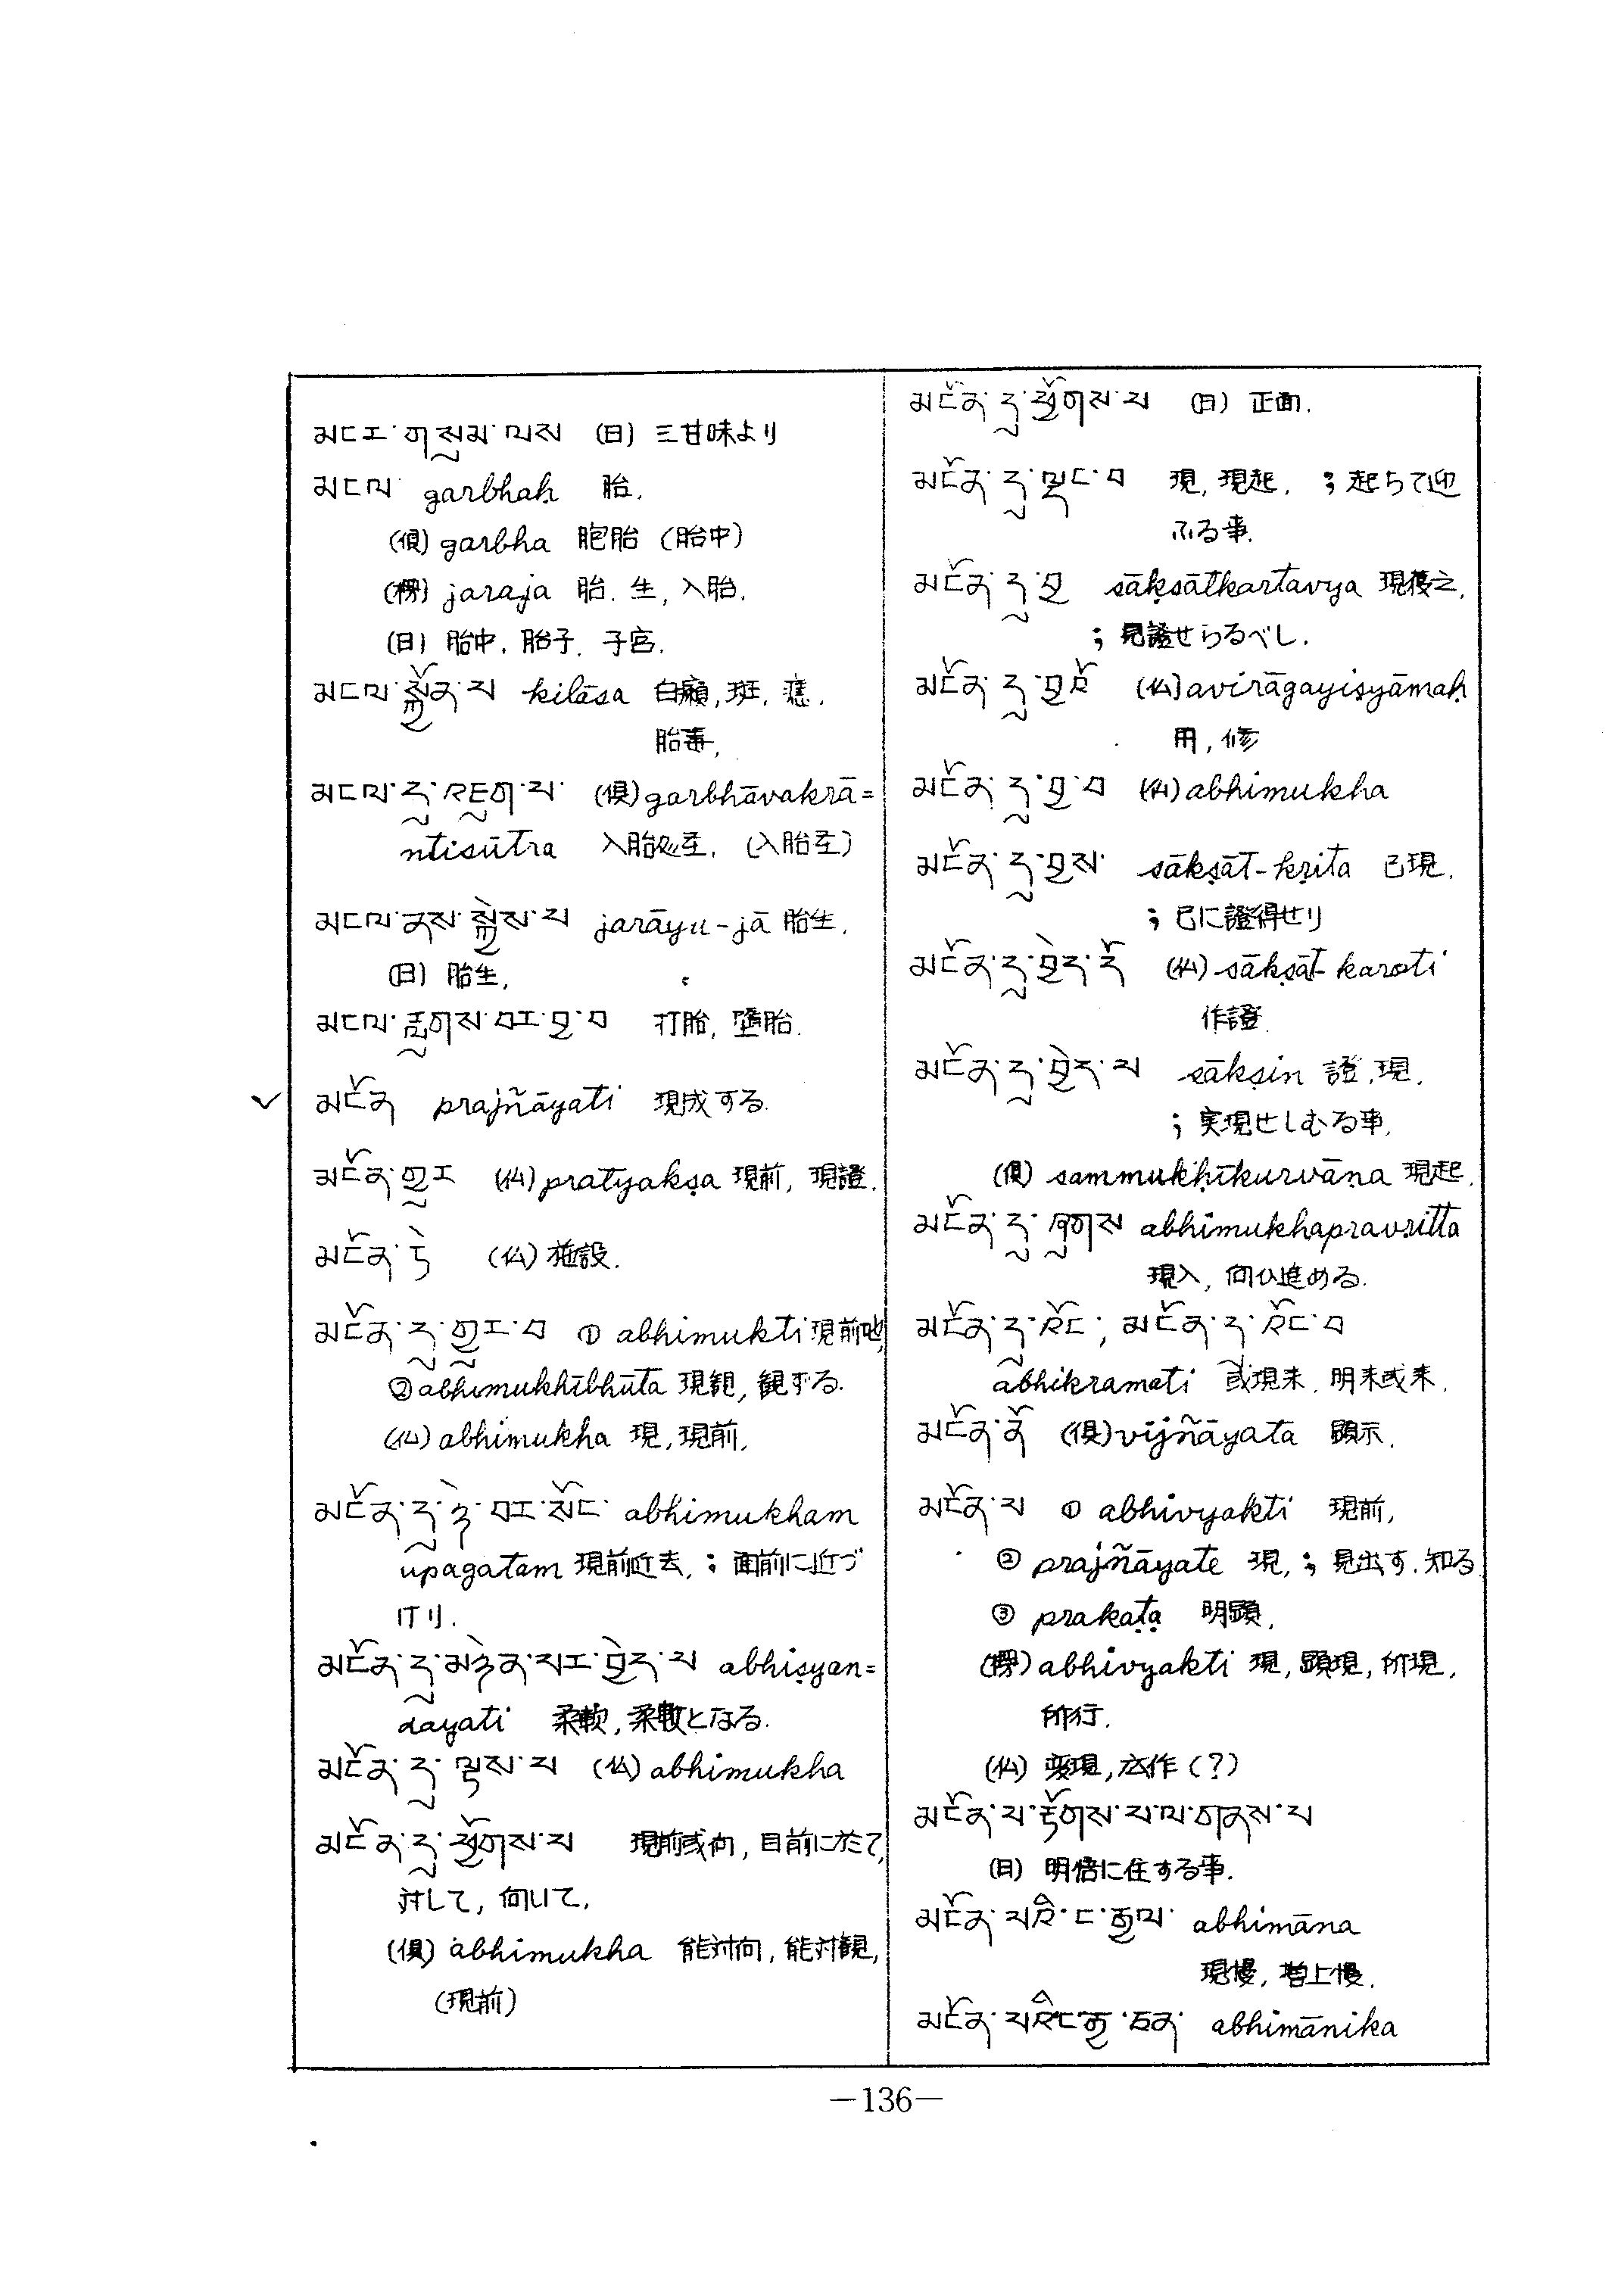 མངར་གསུམ་ལས (日) 三甘味より
མངལ་ garbhaḥ 胎.
(倶) garbha 胞胎 (胎中)
(楞) jaraja 胎. 生, 入胎.
(日) 胎中. 胎子. 子宮.
མངལ་སྐྱོན་པ kilāsa 白癩, 斑,
胎毒,
མངལ་དུ་འཇུག་པ་ (倶) garbhāvakrā=
ntisūtra 入胎処至. (入胎至)
མངལ་ནས་སྐྱེས་པ jarāyu-jā 胎生.
(日) 胎生,
མངལ་རླུགས་བར་བྱ་བ 打胎, 墮胎.
མངོན prajñāyati 現成する.
མངོན་གྱུར (仏) pratyakṣa 現前, 現證.
མངོན་ཏེ (仏) 施設.
མངོན་དུ་གྱུར་བ ① abhimukti 現前地,
② abhimukhībhūta 現観, 観ずる.
(仏) abhimukha 現, 現前,
མངོན་དུ་ཉེ་བར་སོང་ abhimukham
upagatam 現前近去, ; 面前に近づ
けり.
མངོན་དུ་མཉེན་པར་བྱེད་པ abhiṣyan=
dayati 柔軟, 柔軟となる.
མངོན་དུ་ལྟས་པ (仏) abhimukha
མངོན་དུ་ཕྱོགས་པ 現前或向, 目前に於て,
対して, 向いて,
(倶) abhimukha 能対向, 能対観,
(現前)
མངོན་དུ་ཕྱོགས་པ (日) 正面.
མངོན་དུ་ལྡང་བ 現, 現起, ; 起ちて迎
ふる事.
མངོན་དུ་བྱ sākṣātkartavya 現復之,
; 見證せらるべし.
མངོན་དུ་བྱའོ (仏) avirāgayiṣyāmaḥ
用, 修
མངོན་དུ་བྱ་བ (仏) abhimukha
མངོན་དུ་བྱས་ sākṣāt-kṛita 已現.
; 已に證得せり
མངོན་དུ་བྱེད་དོ (仏) sākṣāt karoti
作證.
མངོན་དུ་བྱེད་པ sākṣin 證, 現,
; 実現せしむる事,
(倶) sammukhīkurvāṇa 現起,
མངོན་དུ་ཞུགས abhimukhapravṛitta
現入, 向ひ進める.
མངོན་དུ་འོང་, མངོན་དུ་འོང་བ
abhikramati 或現来. 明来或来.
མངོན་ནོ (倶) vijñāyata 顕示.
མངོན་པ ① abhivyakti 現前,
② prajñāyate 現, ; 見出す. 知る
③ prakaṭa 明顕,
(楞) abhivyakti 現, 顕現, 所現,
所行.
(仏) 変現, 広作 (?)
མངོན་པ་རྟོགས་པ་ལ་གནས་པ
(日) 明悟に住する事.
མངོན་པའི་ང་རྒྱལ་ abhimāna
現慢, 増上慢.
མངོན་པའི་ང་རྒྱ་ཅན་ abhimānika
—136—